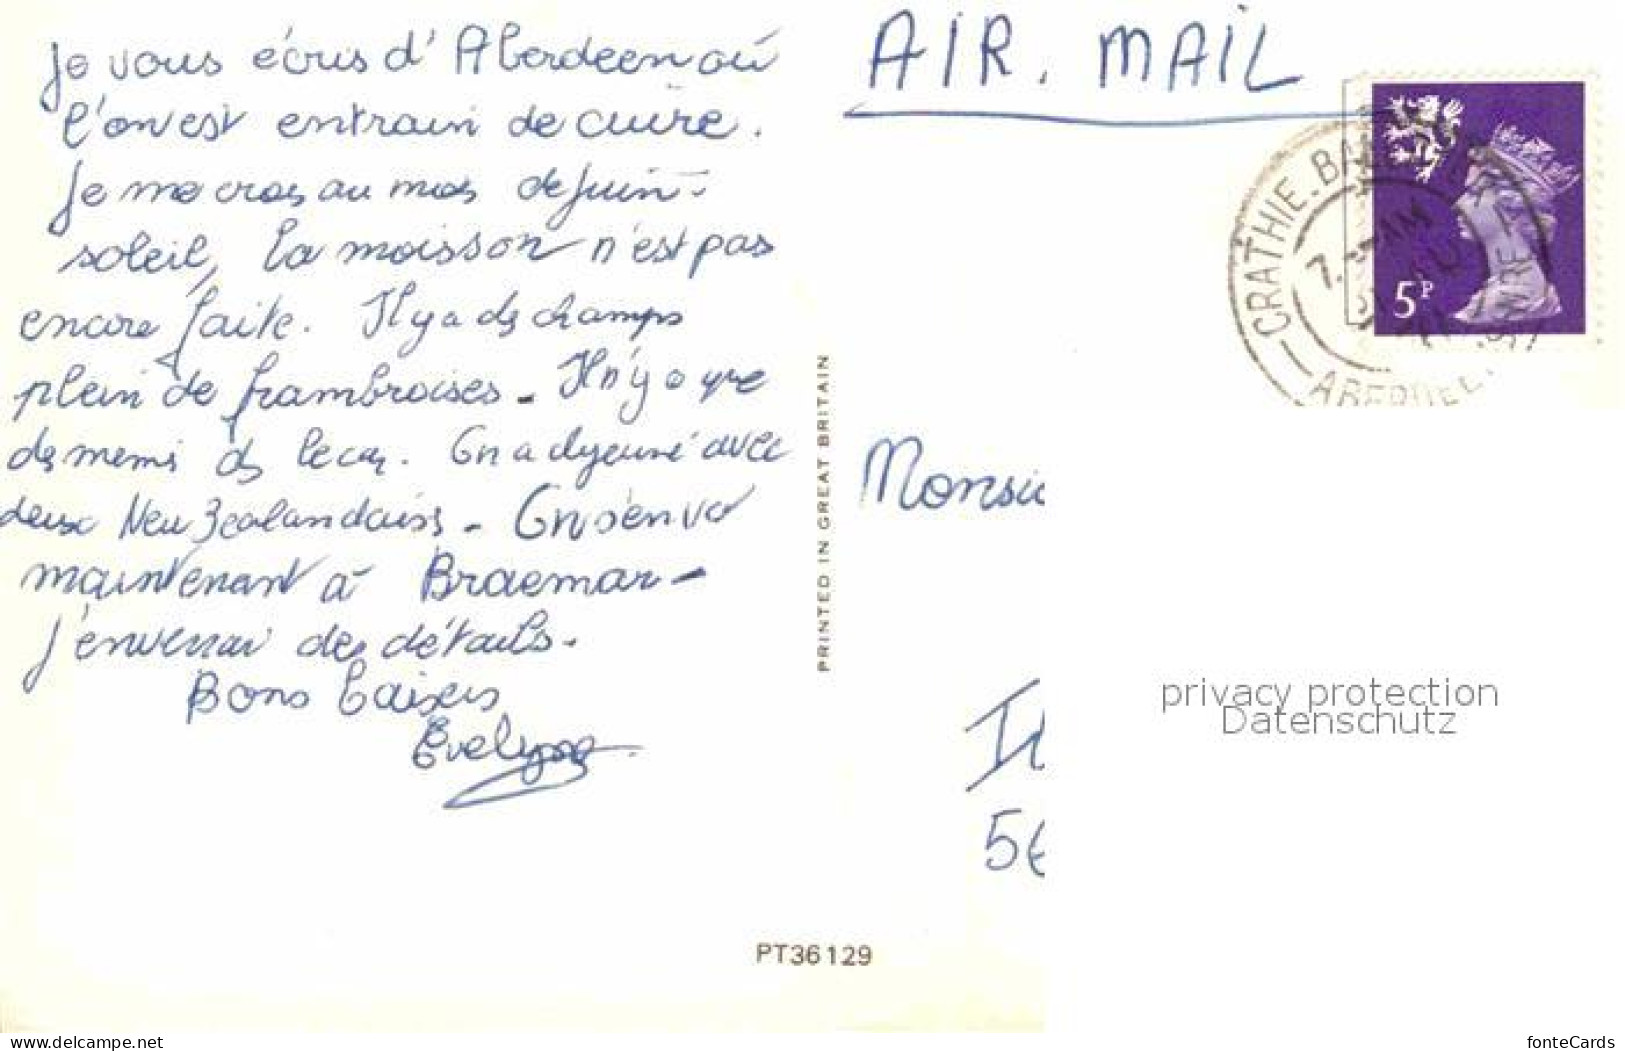 Je vous écris d'Aberdeen où
l'on est entrain de cuire.
Je me crois au mois de juin -
soleil, la moisson n'est pas
encore faite. Il y a des champs
plein de frambroises - Il n'y a que
des memés ds les cars. On a dejeuné avec
deux Neu Zealandaiss - On s'en va
maintenant à Braemar -
J'enverrai des détails.
Bons baisers
Evelyne
AIR. MAIL
CRATHIE.
5P
PRINTED IN GREAT BRITAIN
Monsie
56
privacy protection
Datenschutz
PT36129
www.delcampe.net
fonteCards